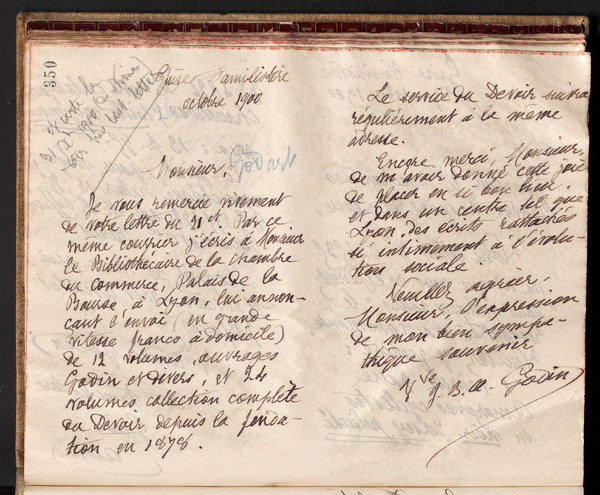 350
Guise Familistère
octobre 1900
Monsieur, Godart
Je vous remercie vivement
de votre lettre du 21 et Par ce
même courrier j'écris à Monsieur
le Bibliothécaire de la chambre
du commerce, Palais de la
Bourse à Lyon, lui annon-
çant l'envoi (en grande
vitesse franco à domicile)
de 12 volumes, ouvrages
Godin et divers, et 24
volumes collection complète
du Devoir depuis la fonda-
tion en 1878.
Le service du Devoir suivra
régulièrement à la même
adresse.
Encore merci, Monsieur,
de m'avoir donné cette joie
de placer en si bon lieu,
et dans un centre tel que
Lyon, des écrits rattachés
si intimement à l'évolu-
tion sociale.
Veuillez agréer,
Monsieur, l'expression
de mon bien sympa-
thique souvenir
Vve J. B. A. Godin